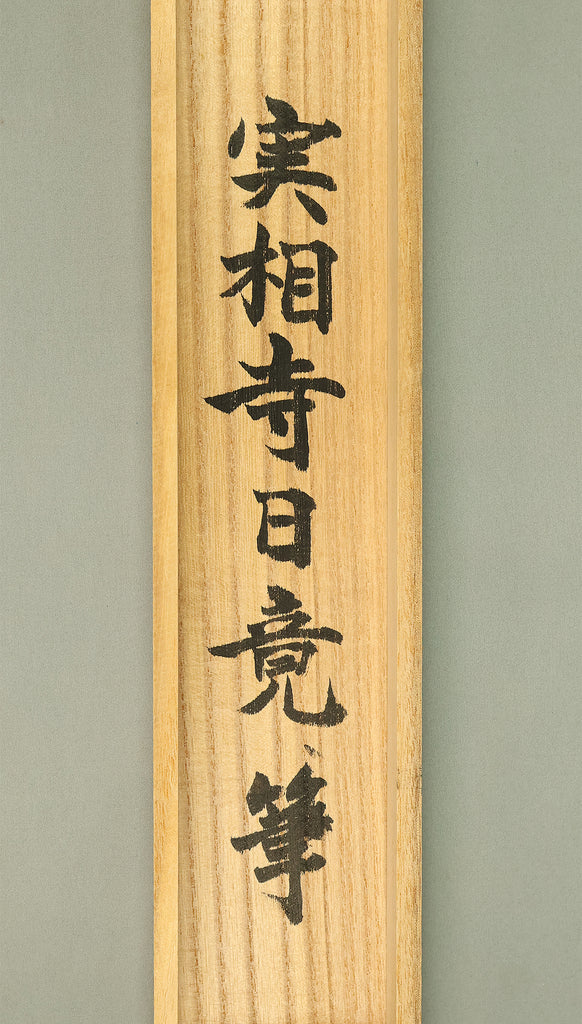 実相寺日竟筆